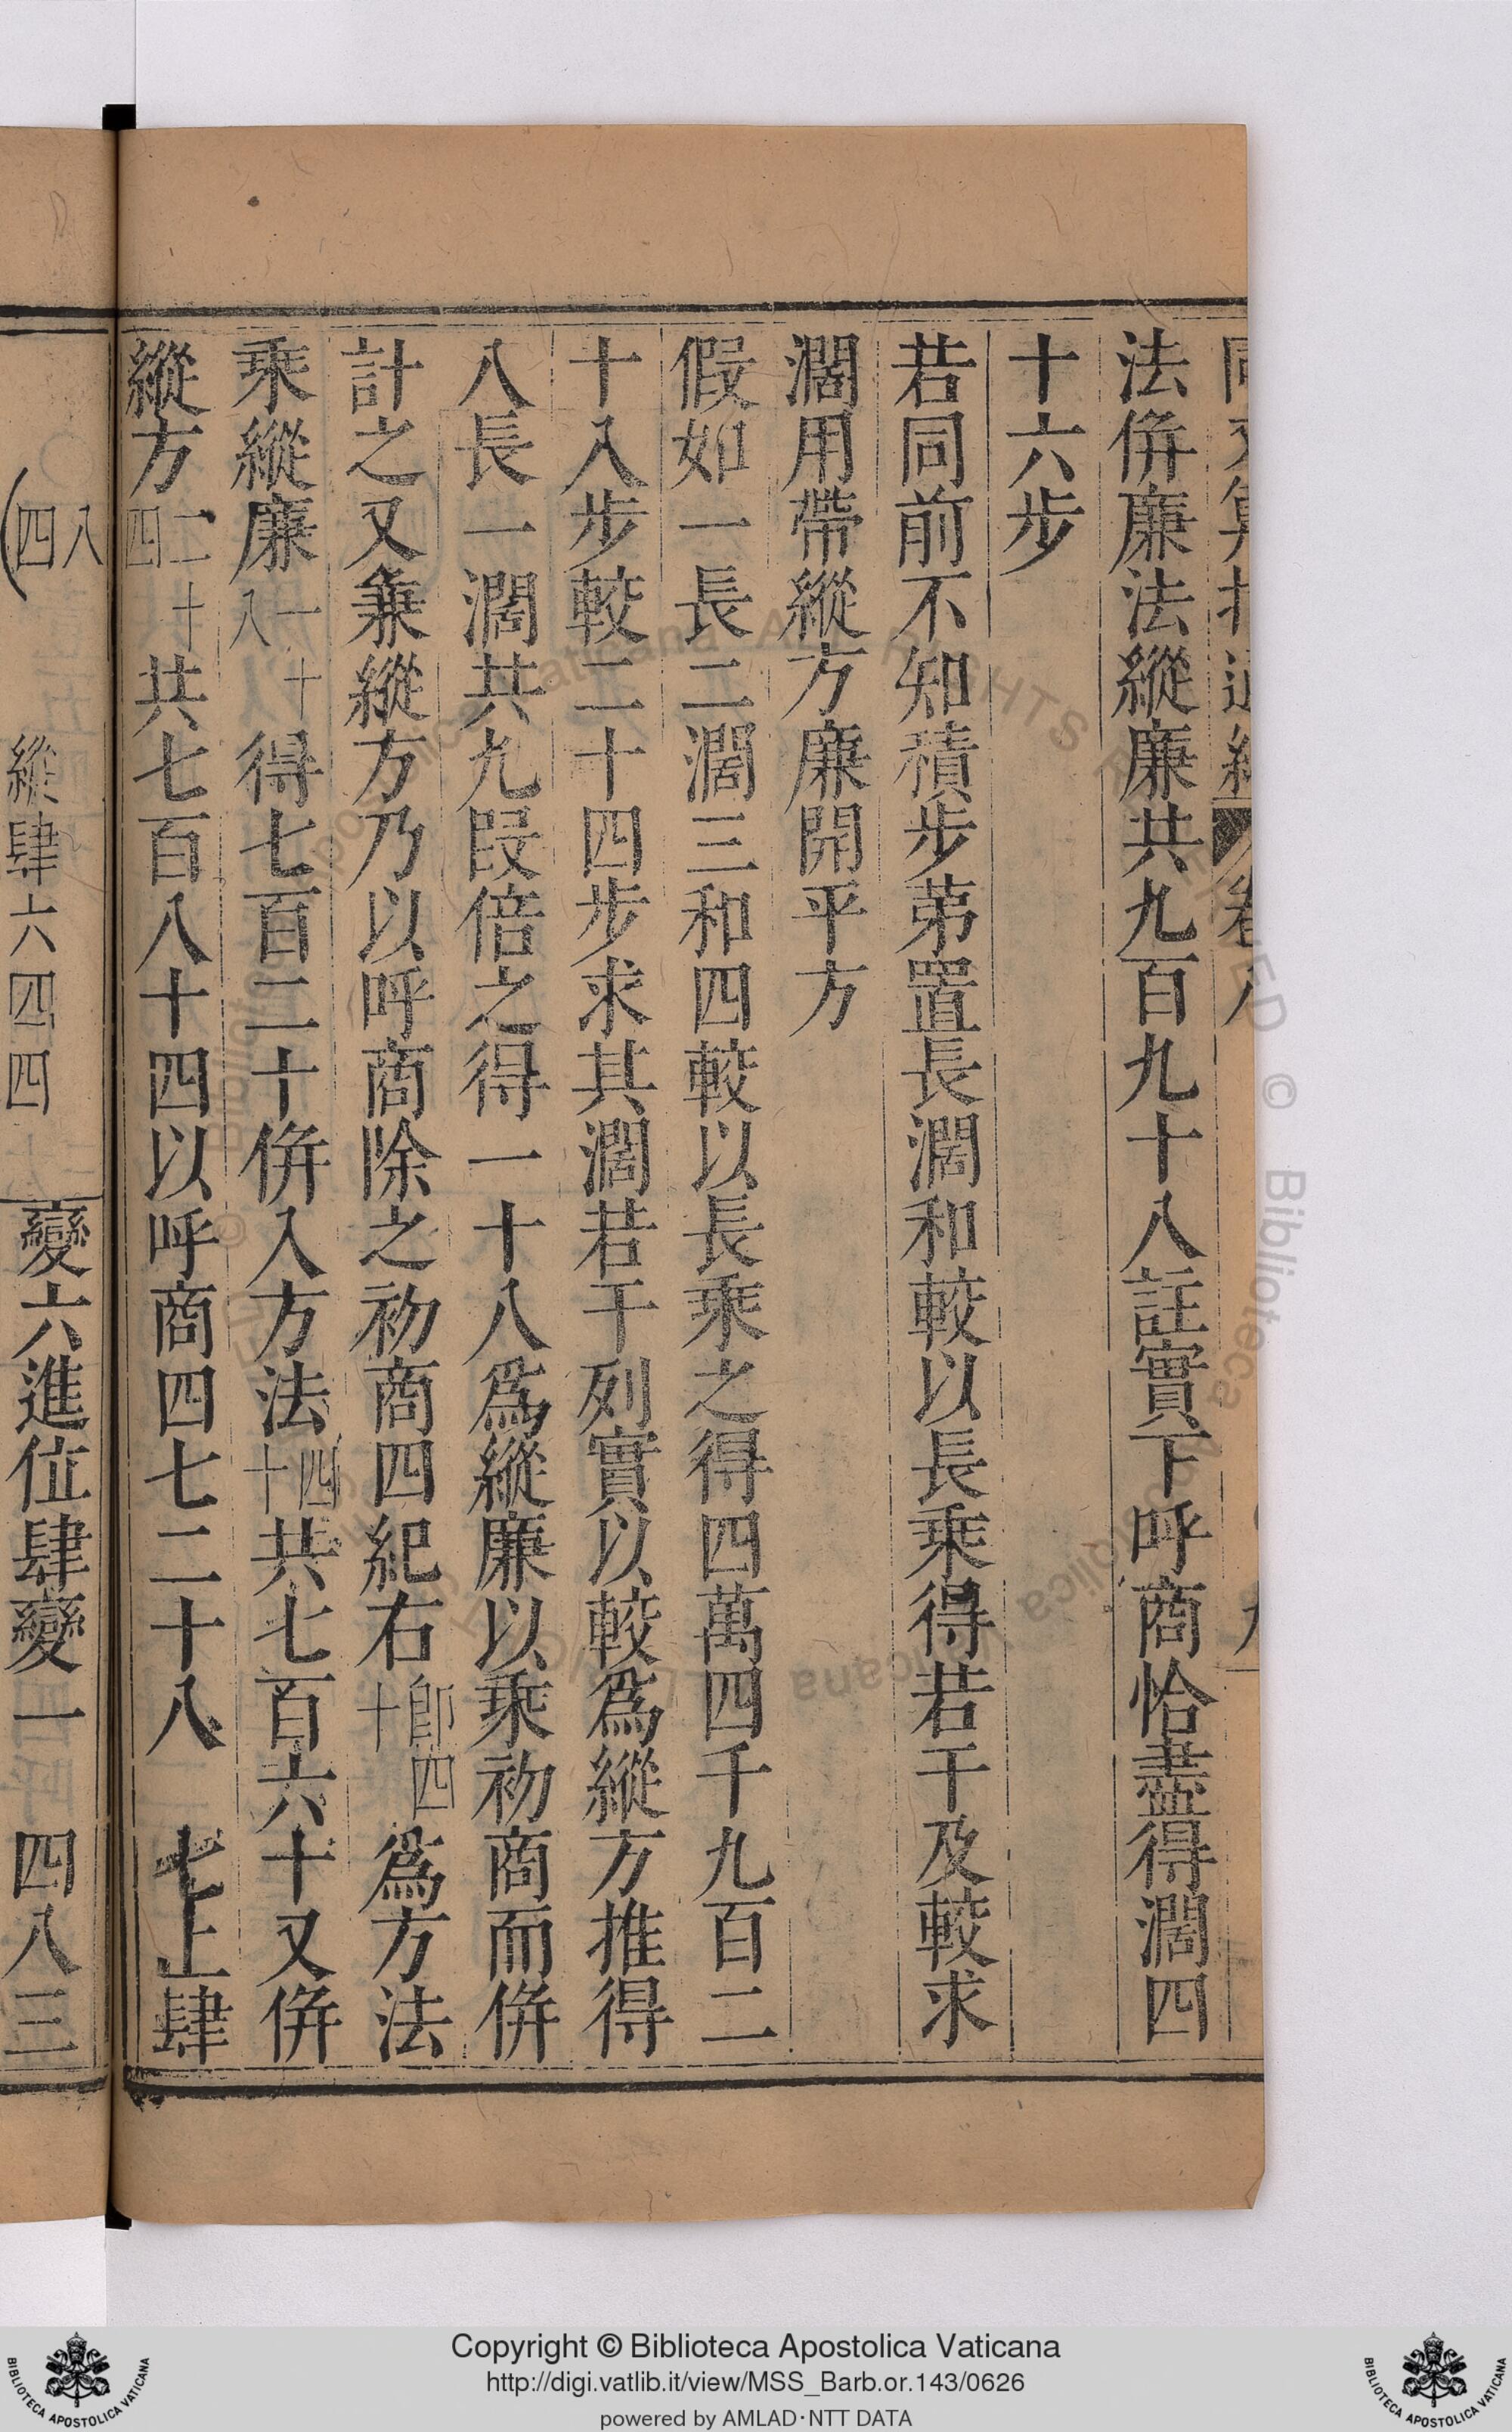 法併廉法縱廉共九百九十八註實下呼商恰盡得濶四
十六步
若同前不知積步第置長濶和較以長乘得若干及較求
濶用帶縱方廉開平方
假如一長二濶三和四較以長乘之得四萬四千九百二
十八步較二十四步求其濶若干列實以較爲縱方推得
八長一濶共九段倍之得一十八爲縱廉以乘初商而併
計之又兼縱方乃以呼商除之初商四紀右即四十爲方法
乘縱廉一十八得七百二十併入方法四十共七百六十又併
縱方二十四共七百八十四以呼商四七二十八七上肆
八四
縱肆六四四
變六進位肆變一 四八三
Copyright © Biblioteca Apostolica Vaticana
http://digi.vatlib.it/view/MSS_Barb.or.143/0626
powered by AMLAD·NTT DATA
BIBLIOTECA APOSTOLICA VATICANA
BIBLIOTECA APOSTOLICA VATICANA